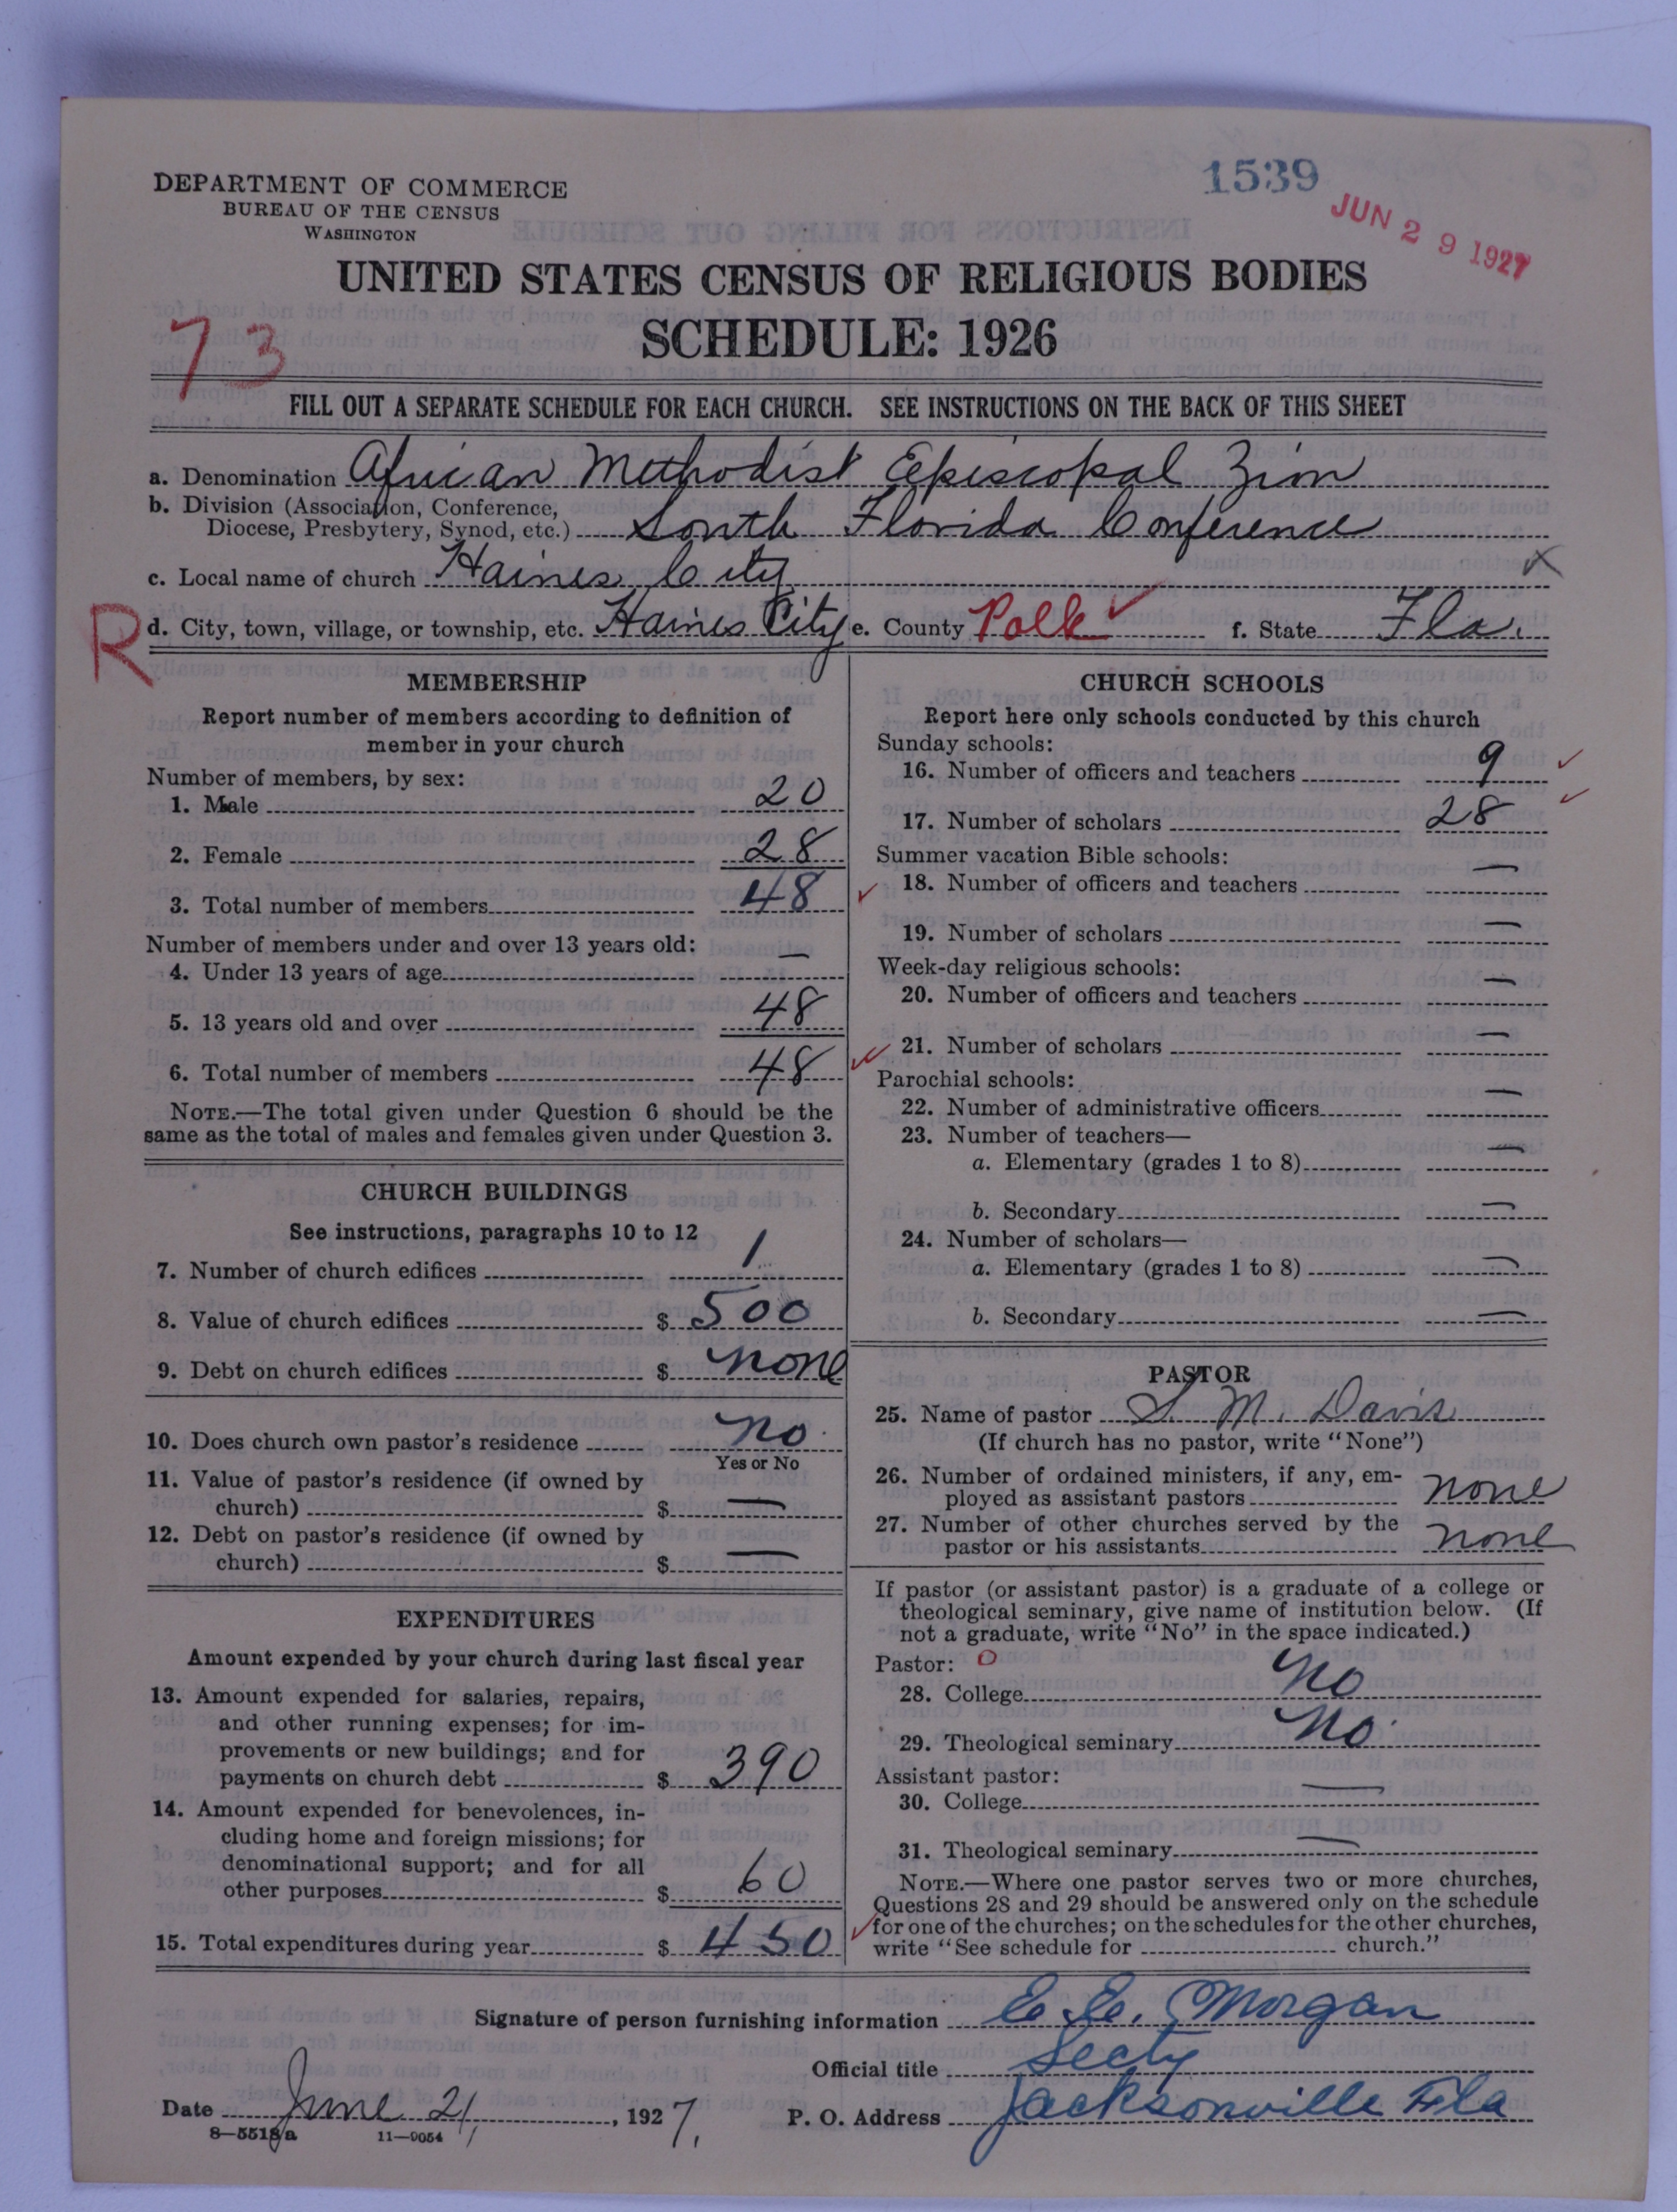 1539
JUN 29 1927
DEPARTMENT OF COMMERCE
BUREAU OF THE CENSUS
WASHINGTON
UNITED STATES CENSUS OF RELIGIOUS BODIES
SCHEDULE: 1926
73
FILL OUT A SEPARATE SCHEDULE FOR EACH CHURCH. SEE INSTRUCTIONS ON THE BACK OF THIS SHEET
a. Denomination African Methodist Episcopal Zion
b. Division (Association, Conference,
Diocese, Presbytery, Synod, etc.) South Florida Conference
c. Local name of church Haines City X
R
d. City, town, village, or township, etc. Haines City e. County Polk ✓ f. State Fla.
MEMBERSHIP
Report number of members according to definition of
member in your church
Number of members, by sex:
1. Male 20
2. Female 28
3. Total number of members 48 ✓
Number of members under and over 13 years old:
4. Under 13 years of age —
5. 13 years old and over 48
6. Total number of members 48 ✓
NOTE.—The total given under Question 6 should be the
same as the total of males and females given under Question 3.
CHURCH BUILDINGS
See instructions, paragraphs 10 to 12
7. Number of church edifices 1
8. Value of church edifices $ 500
9. Debt on church edifices $ none
10. Does church own pastor's residence no
Yes or No
11. Value of pastor's residence (if owned by
church) $ —
12. Debt on pastor's residence (if owned by
church) $ —
EXPENDITURES
Amount expended by your church during last fiscal year
13. Amount expended for salaries, repairs,
and other running expenses; for im-
provements or new buildings; and for
payments on church debt $ 390
14. Amount expended for benevolences, in-
cluding home and foreign missions; for
denominational support; and for all
other purposes $ 60
15. Total expenditures during year $ 450 ✓
CHURCH SCHOOLS
Report here only schools conducted by this church
Sunday schools:
16. Number of officers and teachers 9 ✓
17. Number of scholars 28 ✓
Summer vacation Bible schools:
18. Number of officers and teachers —
19. Number of scholars —
Week-day religious schools:
20. Number of officers and teachers —
21. Number of scholars —
Parochial schools:
22. Number of administrative officers —
23. Number of teachers—
a. Elementary (grades 1 to 8) —
b. Secondary —
24. Number of scholars—
a. Elementary (grades 1 to 8) —
b. Secondary —
PASTOR
25. Name of pastor S. M. Davis
(If church has no pastor, write "None")
26. Number of ordained ministers, if any, em-
ployed as assistant pastors none
27. Number of other churches served by the
pastor or his assistants none
If pastor (or assistant pastor) is a graduate of a college or
theological seminary, give name of institution below. (If
not a graduate, write "No" in the space indicated.)
Pastor: 0
28. College No
29. Theological seminary No
Assistant pastor:
30. College —
31. Theological seminary —
NOTE.—Where one pastor serves two or more churches,
Questions 28 and 29 should be answered only on the schedule
for one of the churches; on the schedules for the other churches,
write "See schedule for church."
Signature of person furnishing information E. E. Morgan
Official title Secty
Date June 21, 1927. P. O. Address Jacksonville Fla
8—5518a 11—9054